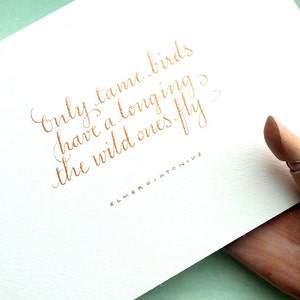 Only tame birds
have a longing
the wild ones fly
ELMER DIKTONIUS